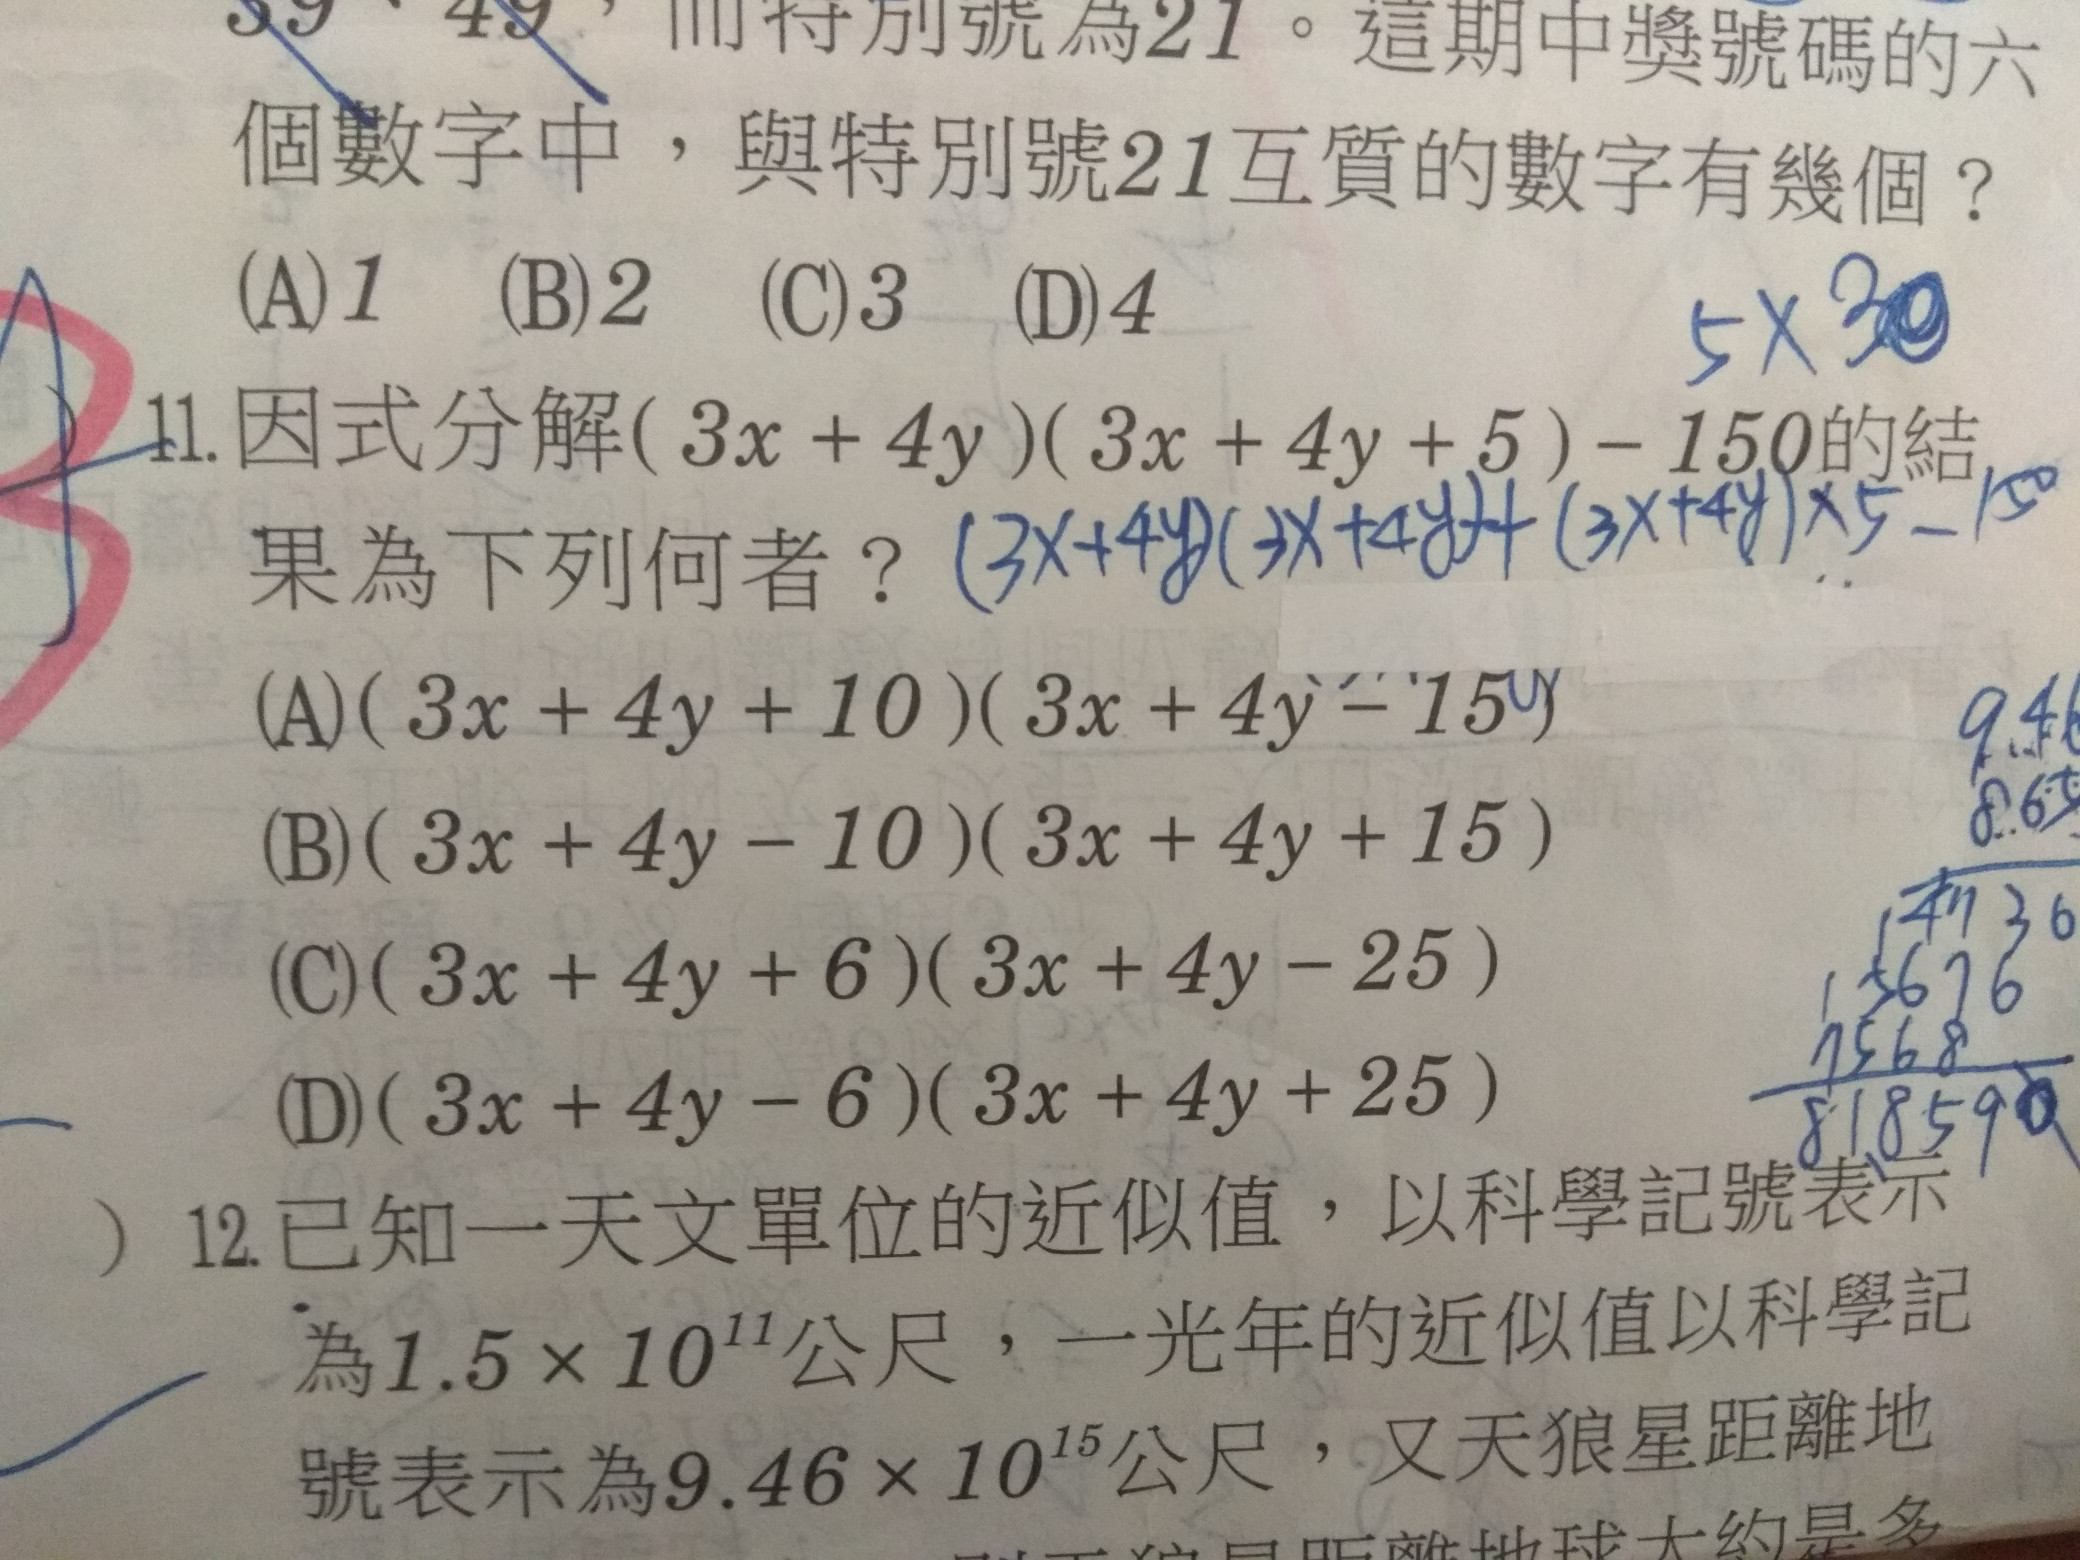 39、49，而特別號為21。這期中獎號碼的六
個數字中，與特別號21互質的數字有幾個？
(A)1 (B)2 (C)3 (D)4
5×30
11.因式分解(3x+4y)(3x+4y+5)-150的結
果為下列何者？
(3x+4y)(3x+4y)+(3x+4y)×5-150
(A)(3x+4y+10)(3x+4y-15)
(B)(3x+4y-10)(3x+4y+15)
(C)(3x+4y+6)(3x+4y-25)
(D)(3x+4y-6)(3x+4y+25)
9.46
8.65
4736
5676
7568
818590
)12.已知一天文單位的近似值，以科學記號表示
為1.5×10¹¹公尺，一光年的近似值以科學記
號表示為9.46×10¹⁵公尺，又天狼星距離地